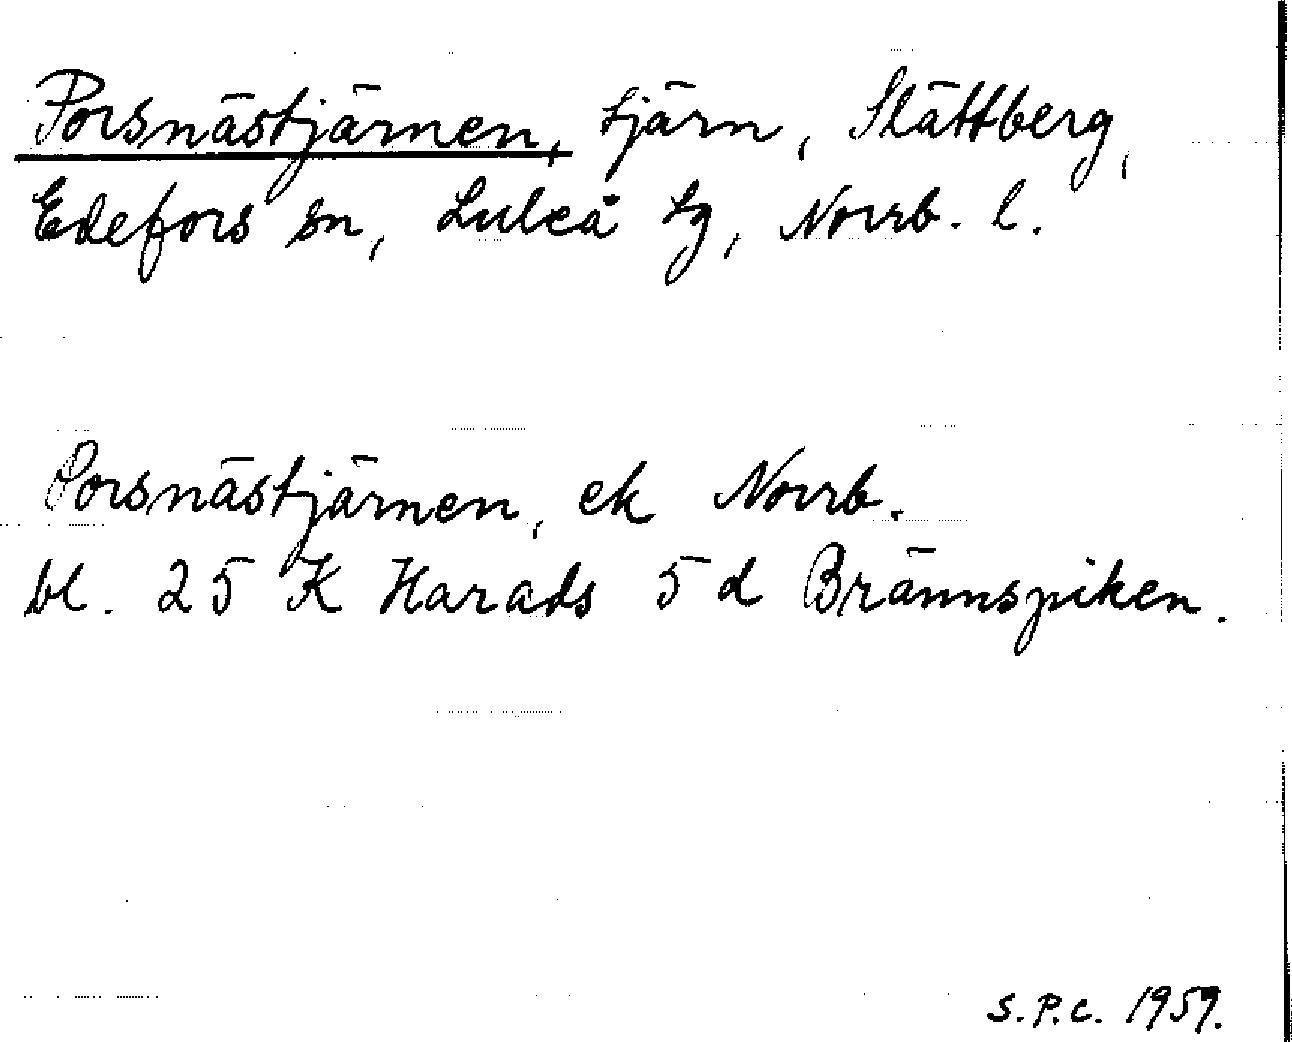 Porsnästjärnen, tjärn, Slättberg,
Edefors sn, Luleå tg, Norrb. l.
Porsnästjärnen, ek Norrb.
bl. 25 K Harads 5 d Brännspiken.
S.P.C. 1959.